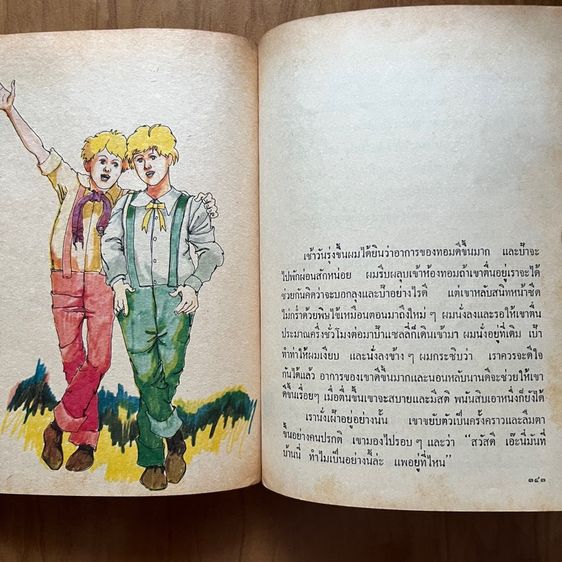 เช้าวันรุ่งขึ้นผมได้ยินว่าอาการของทอมดีขึ้นมาก และป้าจะ
ไปพักผ่อนสักหน่อย ผมรีบผลุบเข้าห้องทอมถ้าเขาตื่นอยู่เราจะได้
ช่วยกันคิดว่าจะบอกลุงและป้าอย่างไรดี แต่เขาหลับสนิทหน้าซีด
ไม่กร่ำด้วยพิษไข้เหมือนตอนมาถึงใหม่ๆ ผมนั่งลงและรอให้เขาตื่น
ประมาณครึ่งชั่วโมงต่อมาป้าแซลลี่ก็เดินเข้ามา ผมนั่งอยู่ที่เดิม เป้า
ทำท่าให้ผมเงียบ และนั่งลงข้างๆ ผมกระซิบว่า เราควรจะดีใจ
กันได้แล้ว อาการของเขาดีขึ้นมากและนอนหลับนานคืจะช่วยให้เขา
ดีขึ้นเรื่อยๆ เมื่อตื่นขึ้นเขาจะสบายและมีสติ พนันสิบเอาหนึ่งก็ยังได้
เรานั่งเฝ้าอยู่อย่างนั้น เขาขยับตัวเป็นครั้งคราวและลืมตา
ขึ้นอย่างคนปรกติ เขามองไปรอบๆ และว่า “สวัสดี เอ๊ะนี่มันที่
บ้านนี่ ทำไมเป็นอย่างนี้ล่ะ แพอยู่ที่ไหน”
๓๔๓